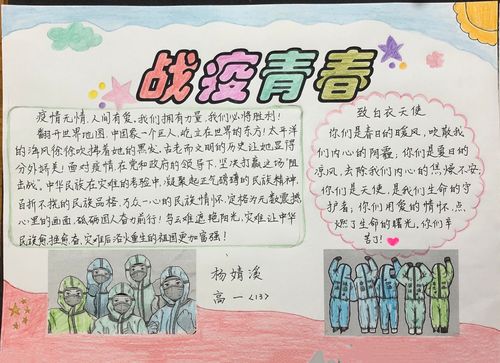 战疫青春
疫情无情,人间有爱,我们拥有力量,我们必将胜利!
翻开世界地图,中国象一个巨人,屹立在世界的东方!太平洋
的海风徐徐吹拂着她的黑发,古老而文明的历史让她显得
分外骄美!面对疫情,在党和政府的领导下,坚决打赢这场"阻
击战"。中华民族在灾难的考验中,凝聚起正气磅礴的民族精神,
百折不挠的民族品格,万众一心的民族情怀,定格为无数震撼
心里的画面,砥砺国人奋力前行!乌云遮不住阳光,灾难让中华
民族愈挫愈奋,灾难后浴火重生的祖国更加富强!
致白衣天使
你们是春日的暖风,吹散我
们内心的阴霾,你们是夏日的
凉风,去除我们内心的焦燥不安。
你们是天使,是我们生命的守
护者;你们用爱的情怀,点
燃了生命的曙光,你们辛
苦了!
杨婧溪
高一<13>